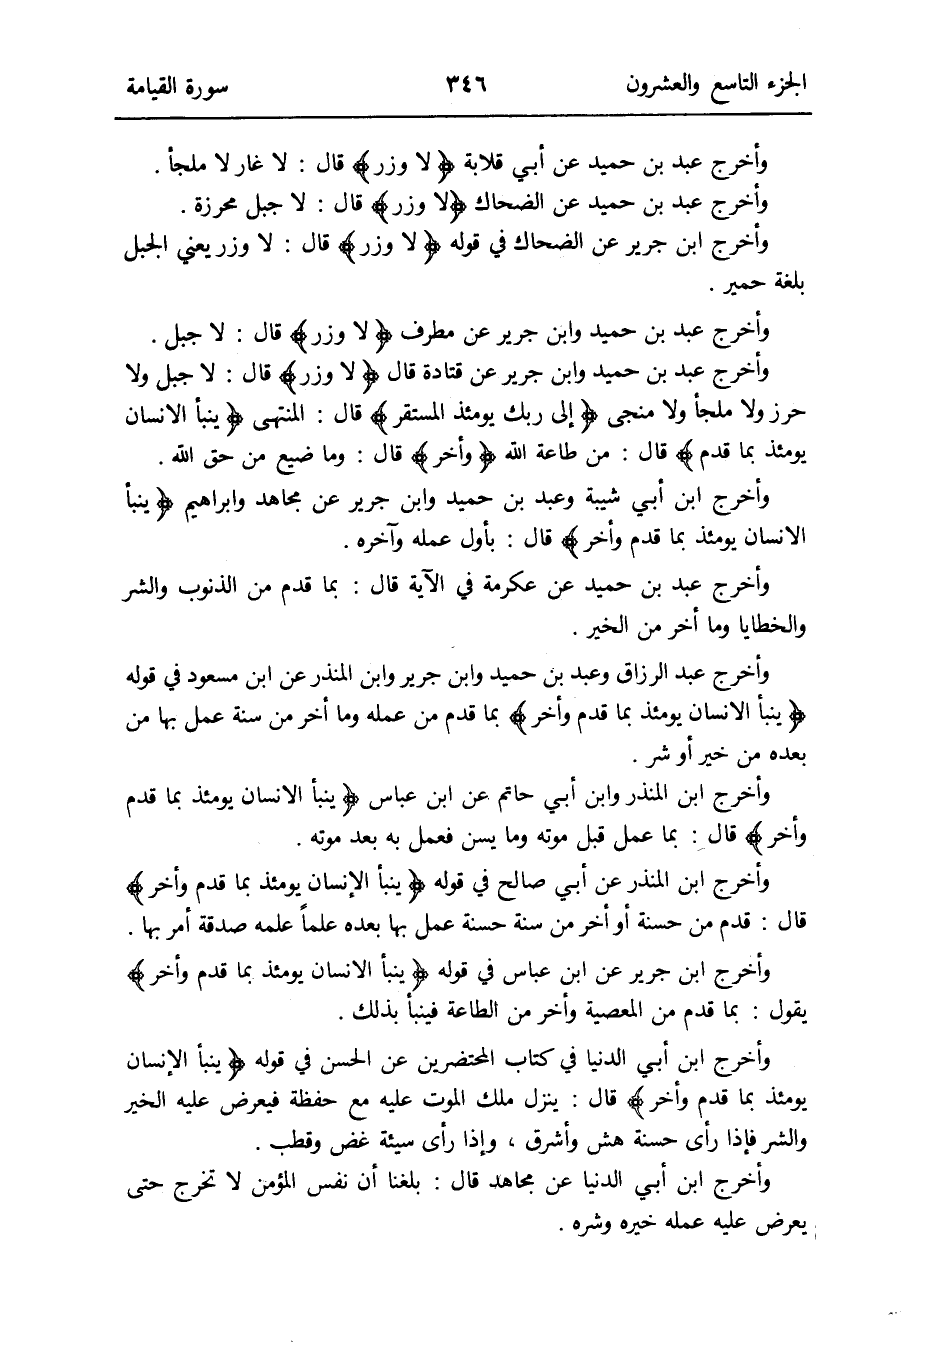 الجزء التاسع والعشرون ٣٤٦ سورة القيامة
وأخرج عبد بن حميد عن أبي قلابة ﴿ لا وزر﴾ قال : لا غار لا ملجأ .
وأخرج عبد بن حميد عن الضحاك ﴿لا وزر﴾ قال : لا جبل محرزة .
وأخرج ابن جرير عن الضحاك في قوله ﴿ لا وزر﴾ قال : لا وزر يعني الجبل
بلغة حمير .
وأخرج عبد بن حميد وابن جرير عن مطرف ﴿ لا وزر﴾ قال : لا جبل .
وأخرج عبد بن حميد وابن جرير عن قتادة قال ﴿ لا وزر﴾ قال : لا جبل ولا
حرز ولا ملجأ ولا منجى ﴿ إلى ربك يومئذ المستقر﴾ قال : المنتهى ﴿ ينبأ الانسان
يومئذ بما قدم ﴾ قال : من طاعة الله ﴿ وأخر ﴾ قال : وما ضيع من حق الله .
وأخرج ابن أبي شيبة وعبد بن حميد وابن جرير عن مجاهد وابراهيم ﴿ ينبأ
الانسان يومئذ بما قدم وأخر ﴾ قال : بأول عمله وآخره .
وأخرج عبد بن حميد عن عكرمة في الآية قال : بما قدم من الذنوب والشر
والخطايا وما أخر من الخير .
وأخرج عبد الرزاق وعبد بن حميد وابن جرير وابن المنذر عن ابن مسعود في قوله
﴿ ينبأ الانسان يومئذ بما قدم وأخر ﴾ بما قدم من عمله وما أخر من سنة عمل بها من
بعده من خير أو شر .
وأخرج ابن المنذر وابن أبي حاتم عن ابن عباس ﴿ ينبأ الانسان يومئذ بما قدم
وأخر ﴾ قال : بما عمل قبل موته وما يسن فعمل به بعد موته .
وأخرج ابن المنذر عن أبي صالح في قوله ﴿ ينبأ الإنسان يومئذ بما قدم وأخر ﴾
قال : قدم من حسنة أو أخر من سنة حسنة عمل بها بعده علماً علمه صدقة أمر بها .
وأخرج ابن جرير عن ابن عباس في قوله ﴿ ينبأ الانسان يومئذ بما قدم وأخر ﴾
يقول : بما قدم من المعصية وأخر من الطاعة فينبأ بذلك .
وأخرج ابن أبي الدنيا في كتاب المحتضرين عن الحسن في قوله ﴿ ينبأ الإنسان
يومئذ بما قدم وأخر ﴾ قال : ينزل ملك الموت عليه مع حفظة فيعرض عليه الخير
والشر فإذا رأى حسنة هش وأشرق ، وإذا رأى سيئة غض وقطب .
وأخرج ابن أبي الدنيا عن مجاهد قال : بلغنا أن نفس المؤمن لا تخرج حتى
يعرض عليه عمله خيره وشره .